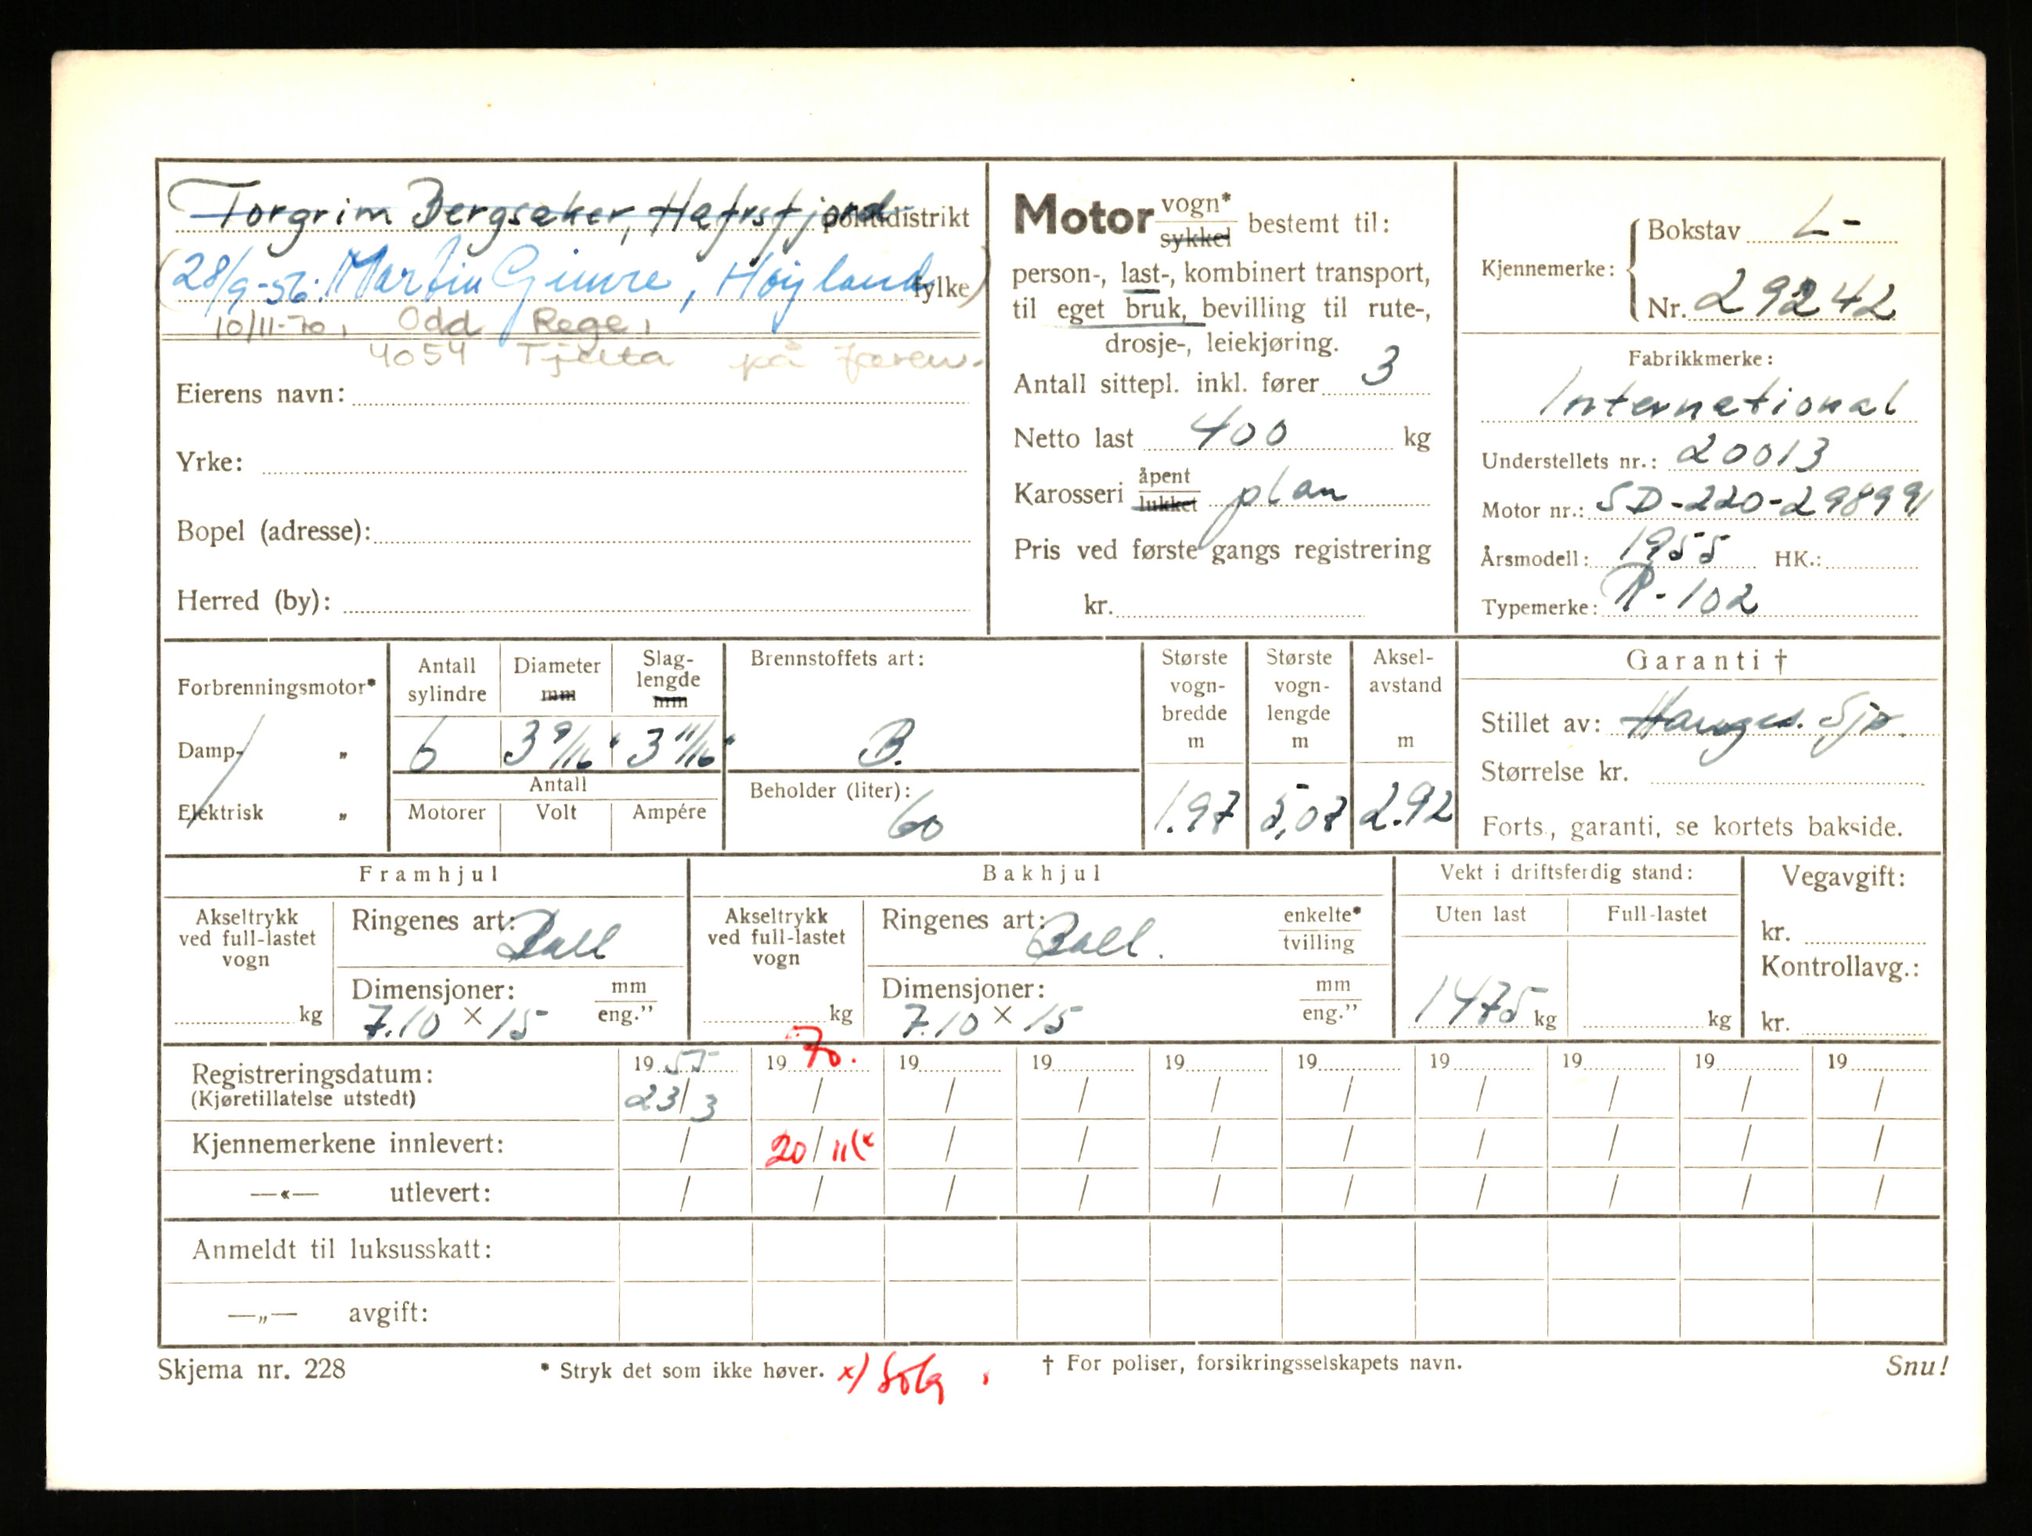 Torgrim Bergsaker, Hafrsfjord politidistrikt
(28/9-56: Martin Gimre, Høyland fylke)
10/11-70, Odd Rege,
4054 Tjelta på Jæren.
Eierens navn:
Yrke:
Bopel (adresse):
Herred (by):
Motor vogn* / sykkel bestemt til:
person-, last-, kombinert transport,
til eget bruk, bevilling til rute-,
drosje-, leiekjøring.
Antall sittepl. inkl. fører 3
Netto last 400 kg
Karosseri åpent / lukket plan
Pris ved første gangs registrering
kr.
Kjennemerke: Bokstav L-
Nr. 29242
Fabrikkmerke:
International
Understellets nr.: 20013
Motor nr.: SD-220-298991
Årsmodell: 1955 HK.:
Typemerke: R-102
Forbrenningsmotor*
Damp- „
Elektrisk „
Antall sylindre 6
Diameter mm 3 9/16"
Slag-lengde mm 3 11/16"
Antall
Motorer Volt Ampére
Brennstoffets art:
B.
Beholder (liter):
60
Største vogn-bredde m 1.97
Største vogn-lengde m 5,07
Aksel-avstand m 2.92
Garanti †
Stillet av: Sjø.
Størrelse kr.
Forts., garanti, se kortets bakside.
Framhjul
Akseltrykk ved full-lastet vogn
kg
Ringenes art: Ball
Dimensjoner: mm / eng."
7.10 × 15
Bakhjul
Akseltrykk ved full-lastet vogn
kg
Ringenes art: Ball. enkelte* / tvilling
Dimensjoner: mm / eng."
7.10 × 15
Vekt i driftsferdig stand:
Uten last Full-lastet
1475 kg kg
Vegavgift:
kr.
Kontrollavg.:
kr.
Registreringsdatum: 19 55 19 70. 19 19 19 19 19 19 19 19
(Kjøretillatelse utstedt) 23/3 / / / / / / / / /
Kjennemerkene innlevert: / 20/11 (x / / / / / / / /
—«— utlevert: / / / / / / / / / /
Anmeldt til luksusskatt:
—„— avgift:
Skjema nr. 228 * Stryk det som ikke høver. x) Solg. † For poliser, forsikringsselskapets navn. Snu!